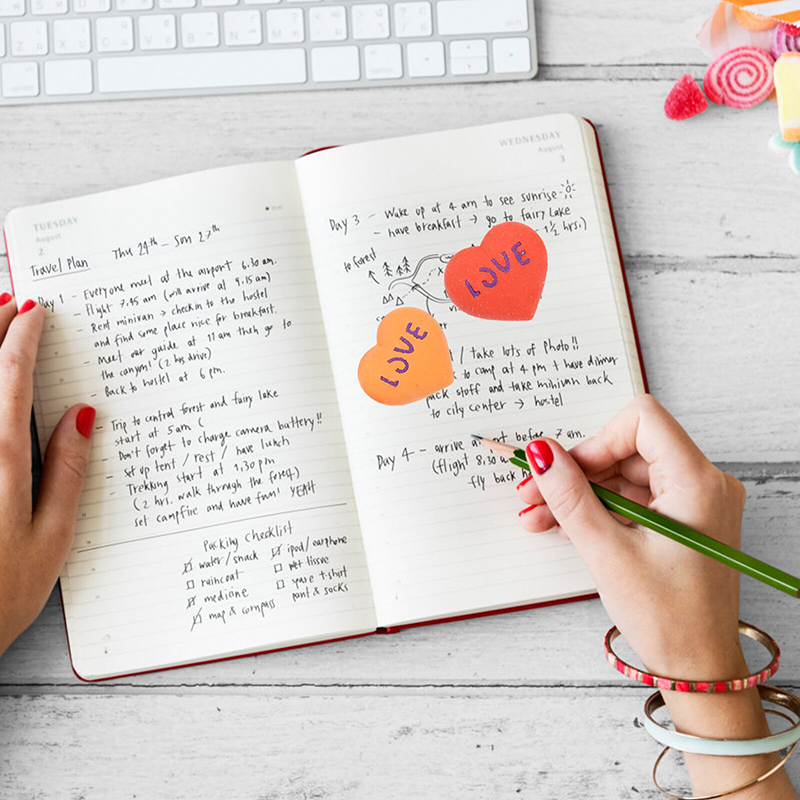 TUESDAY
August
2
Thu 24th - Sun 27th
Travel Plan
Day 1 - Everyone meet at the airport 6.30 am.
- Flight 7.45 am (will arrive at 9.15 am)
- Rent minivan → check in to the hostel
and find some place nice for breakfast.
- Meet our guide at 11 am then go to
the canyon! (2 hrs drive)
- Back to hostel at 6 pm.
- Trip to central forest and fairy lake
start at 5 am (
- Don't forget to charge camera battery!!
- set up tent / rest / have lunch
- Trekking start at 1.30 pm
(2 hrs. walk through the forest)
set campfire and have fun! YEAH
Packing Checklist
water/snack
raincoat
medicine
map & compass
ipod/earphone
wet tissue
spare t-shirt
pant & socks
WEDNESDAY
August
3
Day 3 - Wake up at 4 am to see sunrise
- have breakfast → go to fairy Lake
1½ hrs.)
to forest
LOVE
LOVE
/ take lots of photo!!
to camp at 4 pm + have dinner
pack stuff and take minivan back
to city center → hostel
Day 4 - arrive before 7 am.
(flight 8.30
fly back